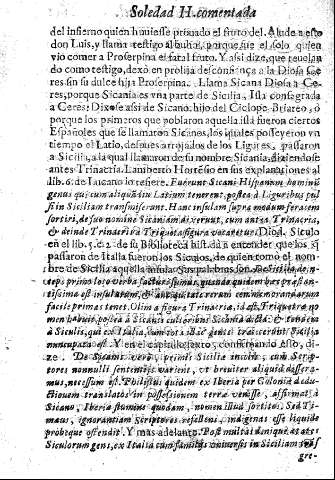 Soledad II. comentada
del infierno quien huuiesse priuado el fruto del. Alude a esto
don Luis, y llama testigo al buho, porque fue el solo quien
vio comer a Proserpina el fatal fruto. Y assi dize, que reuelan
do como testigo, dexò en prolija desconfiança a la Diosa Ce
res sin su dulce hija Proserpina. Llama Sicana Diosa a Ce-
res, porque Sicania es vna parte de Sicilia, Isla consegrada
a Ceres: Dixose assi de Sicano hijo del Ciclope Briareo, ò
porque los primeros que poblaron aquella isla fueron ciertos
Españoles que se llamaron Sicanos, los quales posseyeron vn
tiempo el Latio, despues arrojados de los Ligures, passaron
a Sicilia, a la qual llamaron de su nombre Sicania, diziendose
antes Trinacria. Lamberto Hortensio en sus explanationes al
lib. 6. de Lucano lo refiere. Fuerunt Sicani Hispanum hominũ
genus qui cum aliquandiu Latium tenerent, postea à Liguribus tu
si in Siciliam transmiserunt. Hanc insulam supra modum feracem
sortiti, de suo nomine Sicaniam dixerunt, cum antea Trinacria,
& deinde Trinacria Triqueta figura vocaretur. Diod. Siculo
en el lib. 5. c. 2. de su Biblioteca hist. da a entender que los q̃
passaron de Italia fueron los Siculos, de quien tomò el nom-
bre de Sicilia aquella insula. Sus palabras son. De Sicilia dein-
ceps primo loco verba facturi sumus, quando quidem hec præstan-
tissima est insularum, & antiquitate rerum commemorandarum
facile primas tenet. Olim à figura Trinacria, id est, Triquetra no
men habuit, postea à Sicanis cultoribus Sicania dicta: & tandem
à Siculis, qui ex Italia, cum tota hac gente traiecerunt Sicilia
nuncupata est. Y en el capitulo sexto, confirmando esso, di-
ze. De Sicanis verò, primis Siciliæ incolis, cum Scrip-
tores nonnulli sententijs varient, vt breuiter aliquid dissera-
mus, necessum est. Philistus quidem ex Iberia per Colonia dedu-
ctionem translatos in possessionem terra venisse, affirmat, à
Sicano, Iberia flumine quodam, nomen illud sortitos. Sed Ti-
maus, ignorantiam scriptoris refellens, indigenas esse liquide
probèque ostendit. Y mas adelante. Post multas denique ætates
Siculorum gens, ex Italia cum familijs vniuersis in Siciliam trãs
gre-